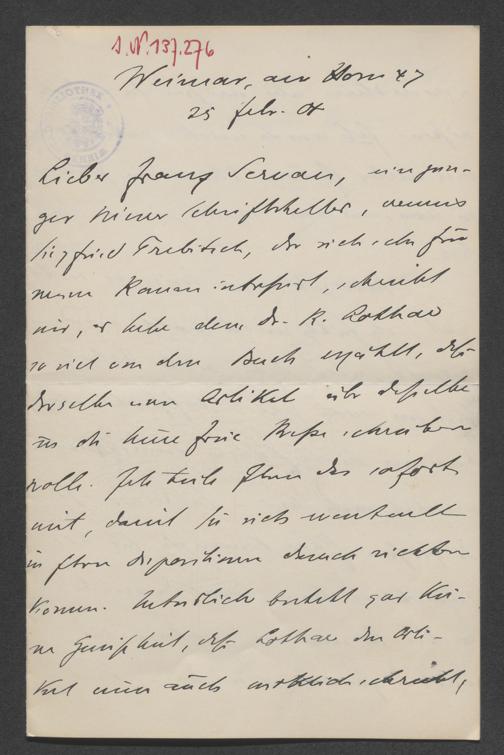 I.N. 137.276
Weimar, am Horn 47
25 Febr. 04
Lieber Franz Servaes, ein jun-
ger Wiener Schriftsteller, namens
Siegfried Trebitsch, der sich sehr für
meinen Roman interessirt, schreibt
mir, er habe dem Dr. R. Lothar
so viel von dem Buch erzählt, daß
derselbe einen Artikel über dasselbe
in die Neue Freie Presse schreiben
wolle. Ich teile Ihnen das sofort
mit, damit Sie sich eventuell
in Ihren Dispositionen danach richten
können. Natürlich besteht gar kei-
ne Gewißheit, daß Lothar den Arti-
kel nun auch wirklich schreibt,